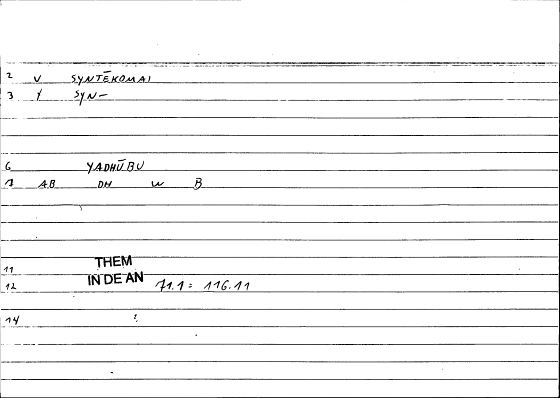 2 V SYNTĒKOMAI
3 Y SYN-
6 YADHŪBU
7 AB DH W B
11 THEM
12 IN DE AN 71.1 = 116.11
14 :